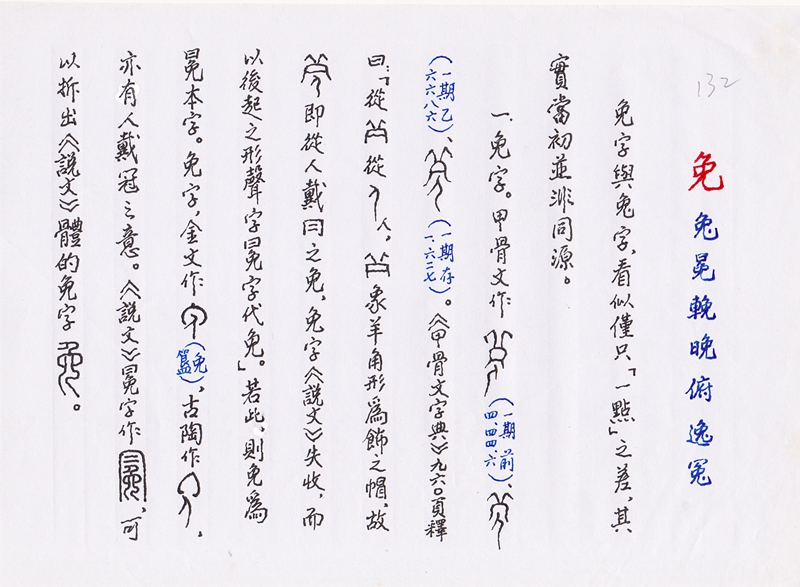 132
免 兔冕輓晚俯逸冤
免字與兔字，看似僅只「一點」之差，其
實當初並非同源。
一、免字。甲骨文作（一期前四、四四、六）、
（一期乙六六八六）、（一期存一、六二七）。《甲骨文字典》九六〇頁釋
曰：「從從人，象羊角形為飾之帽，故
即從人戴冃之免，免字《說文》失收，而
以後起之形聲字冕字代免。」若此，則免為
冕本字。免字，金文作（免簋），古陶作，
亦有人戴冠之意。《說文》冕字作，可
以拆出《說文》體的免字。